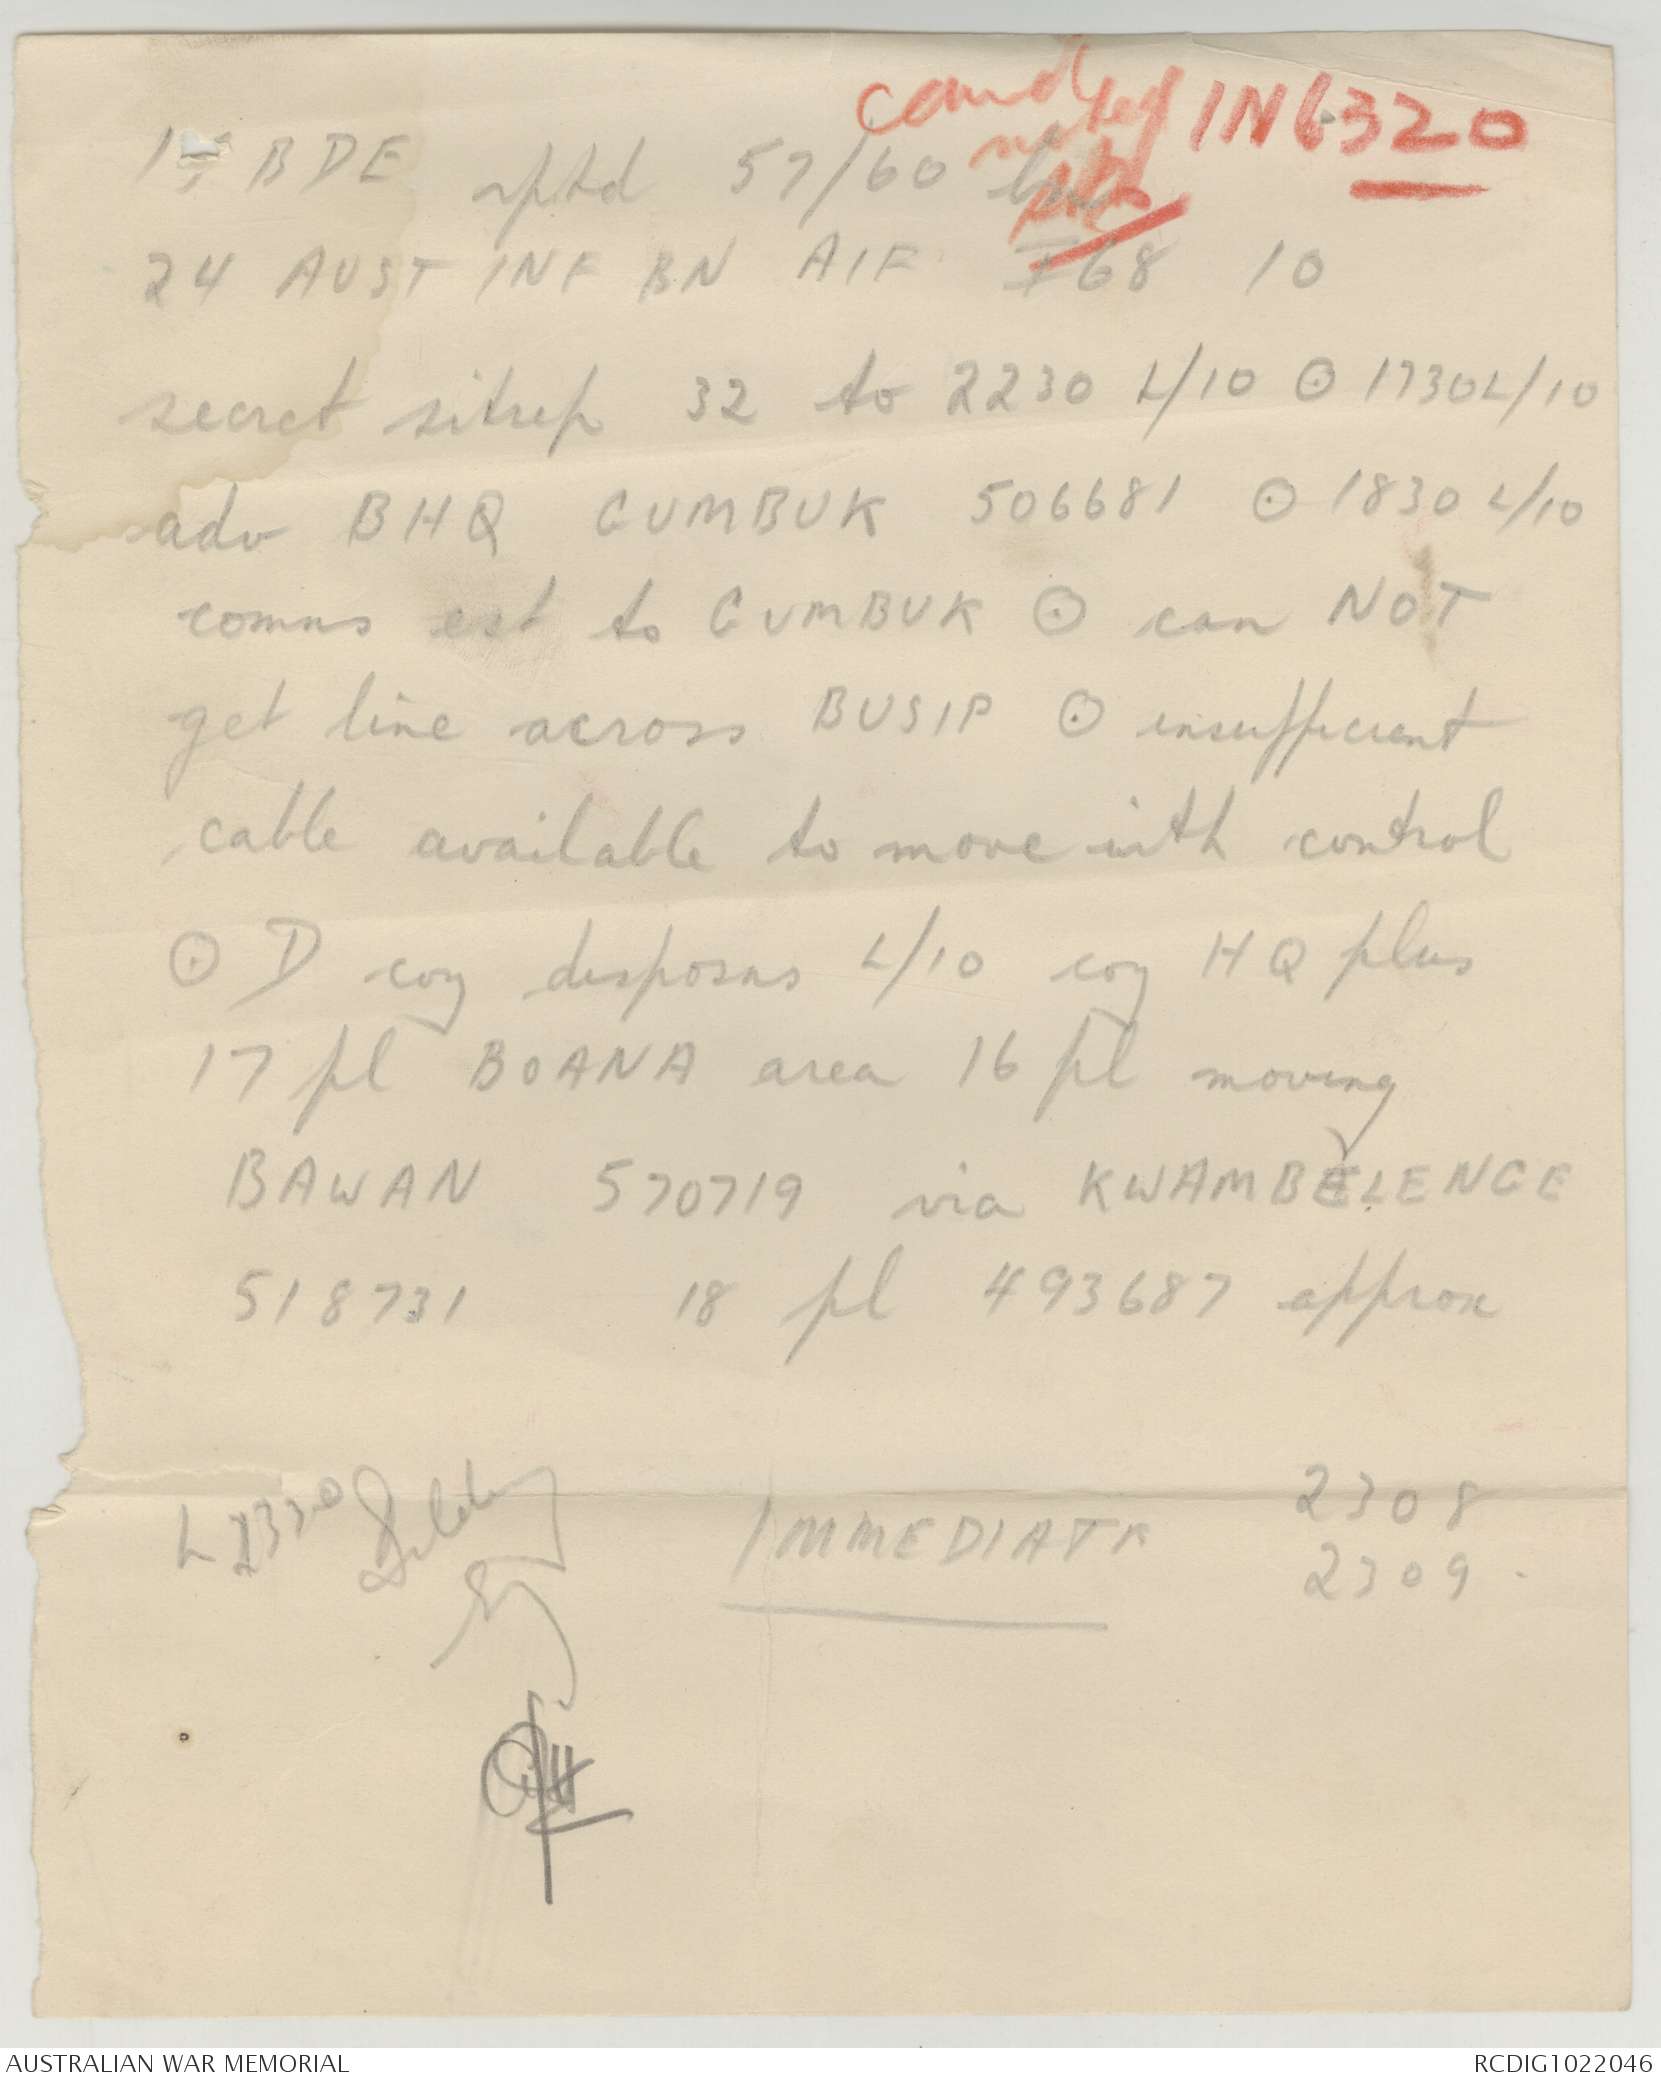 IN6320
15 BDE rptd 57/60 bn
24 AUST INF BN AIF I68 10
secret sitrep 32 to 2230 L/10 ⊙ 1730L/10
adv BHQ GUMBUK 506681 ⊙ 1830 L/10
comns est to GUMBUK ⊙ can NOT
get line across BUSIP ⊙ insufficient
cable available to move with control
⊙ D coy disposns L/10 coy HQ plus
17 pl BOANA area 16 pl moving
BAWAN 570719 via KWAMBELENGE
518731 18 pl 493687 approx
IMMEDIATE
2308
2309
AUSTRALIAN WAR MEMORIAL
RCDIG1022046